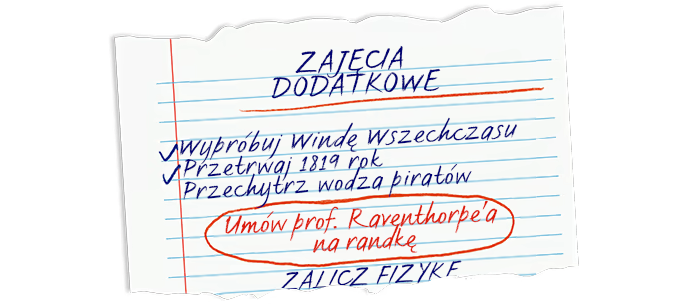 ZAJĘCIA
DODATKOWE
✓Wypróbuj Windę Wszechczasu
✓Przetrwaj 1819 rok
Przechytrz wodza piratów
Umów prof. Raventhorpe'a
na randkę
ZALICZ FIZYKĘ